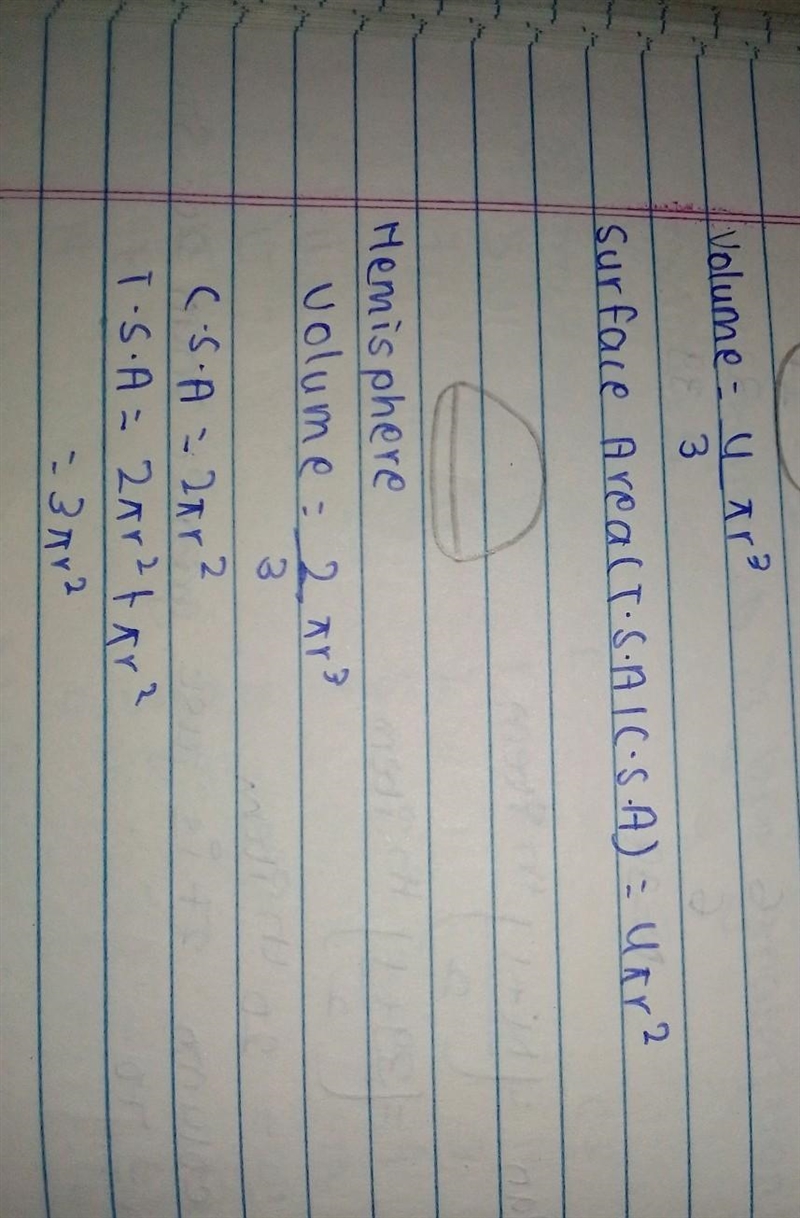 Volume = 4/3 πr³
Surface Area (T.S.A/C.S.A) = 4πr²
Hemisphere
Volume = 2/3 πr³
C.S.A = 2πr²
T.S.A = 2πr² + πr²
= 3πr²